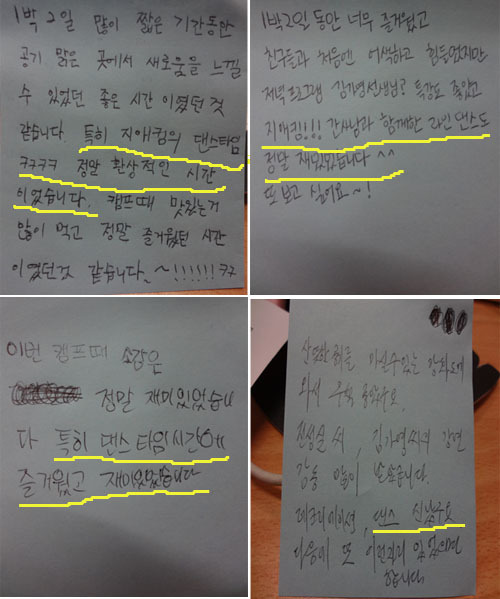 1박 2일 많이 짧은 기간동안
공기 맑은 곳에서 새로움을 느낄
수 있었던 좋은 시간 이였던 것
같습니다. 특히 지애킴의 댄스타임
ㅋㅋㅋㅋ 정말 환상적인 시간
이었습니다. 캠프때 맛있는거
많이 먹고 정말 즐거웠던 시간
이였던것 같습니다~!!!!!! ㅋㅋ
1박2일 동안 너무 즐거웠고
친구들과 처음엔 어색하고 힘들었지만
저녁 프로그램 김가영선생님? 특강도 좋았고
지애킴!!! 간사님과 함께한 라인댄스도
정말 재밌었습니다 ^^
또 보고 싶어요~!
이번 캠프때 소감은
정말 재미있었습니
다 특히 댄스타임시간에
즐거웠고 재미있었습니다
마실수있는 강화도에
와서 무척 좋았구요.
진성술 씨, 김가영씨의 강연
감동 많이 받았습니다.
레크리에이션, 댄스 신났구요
다음에 또 이런자리 있었으면
합니다.